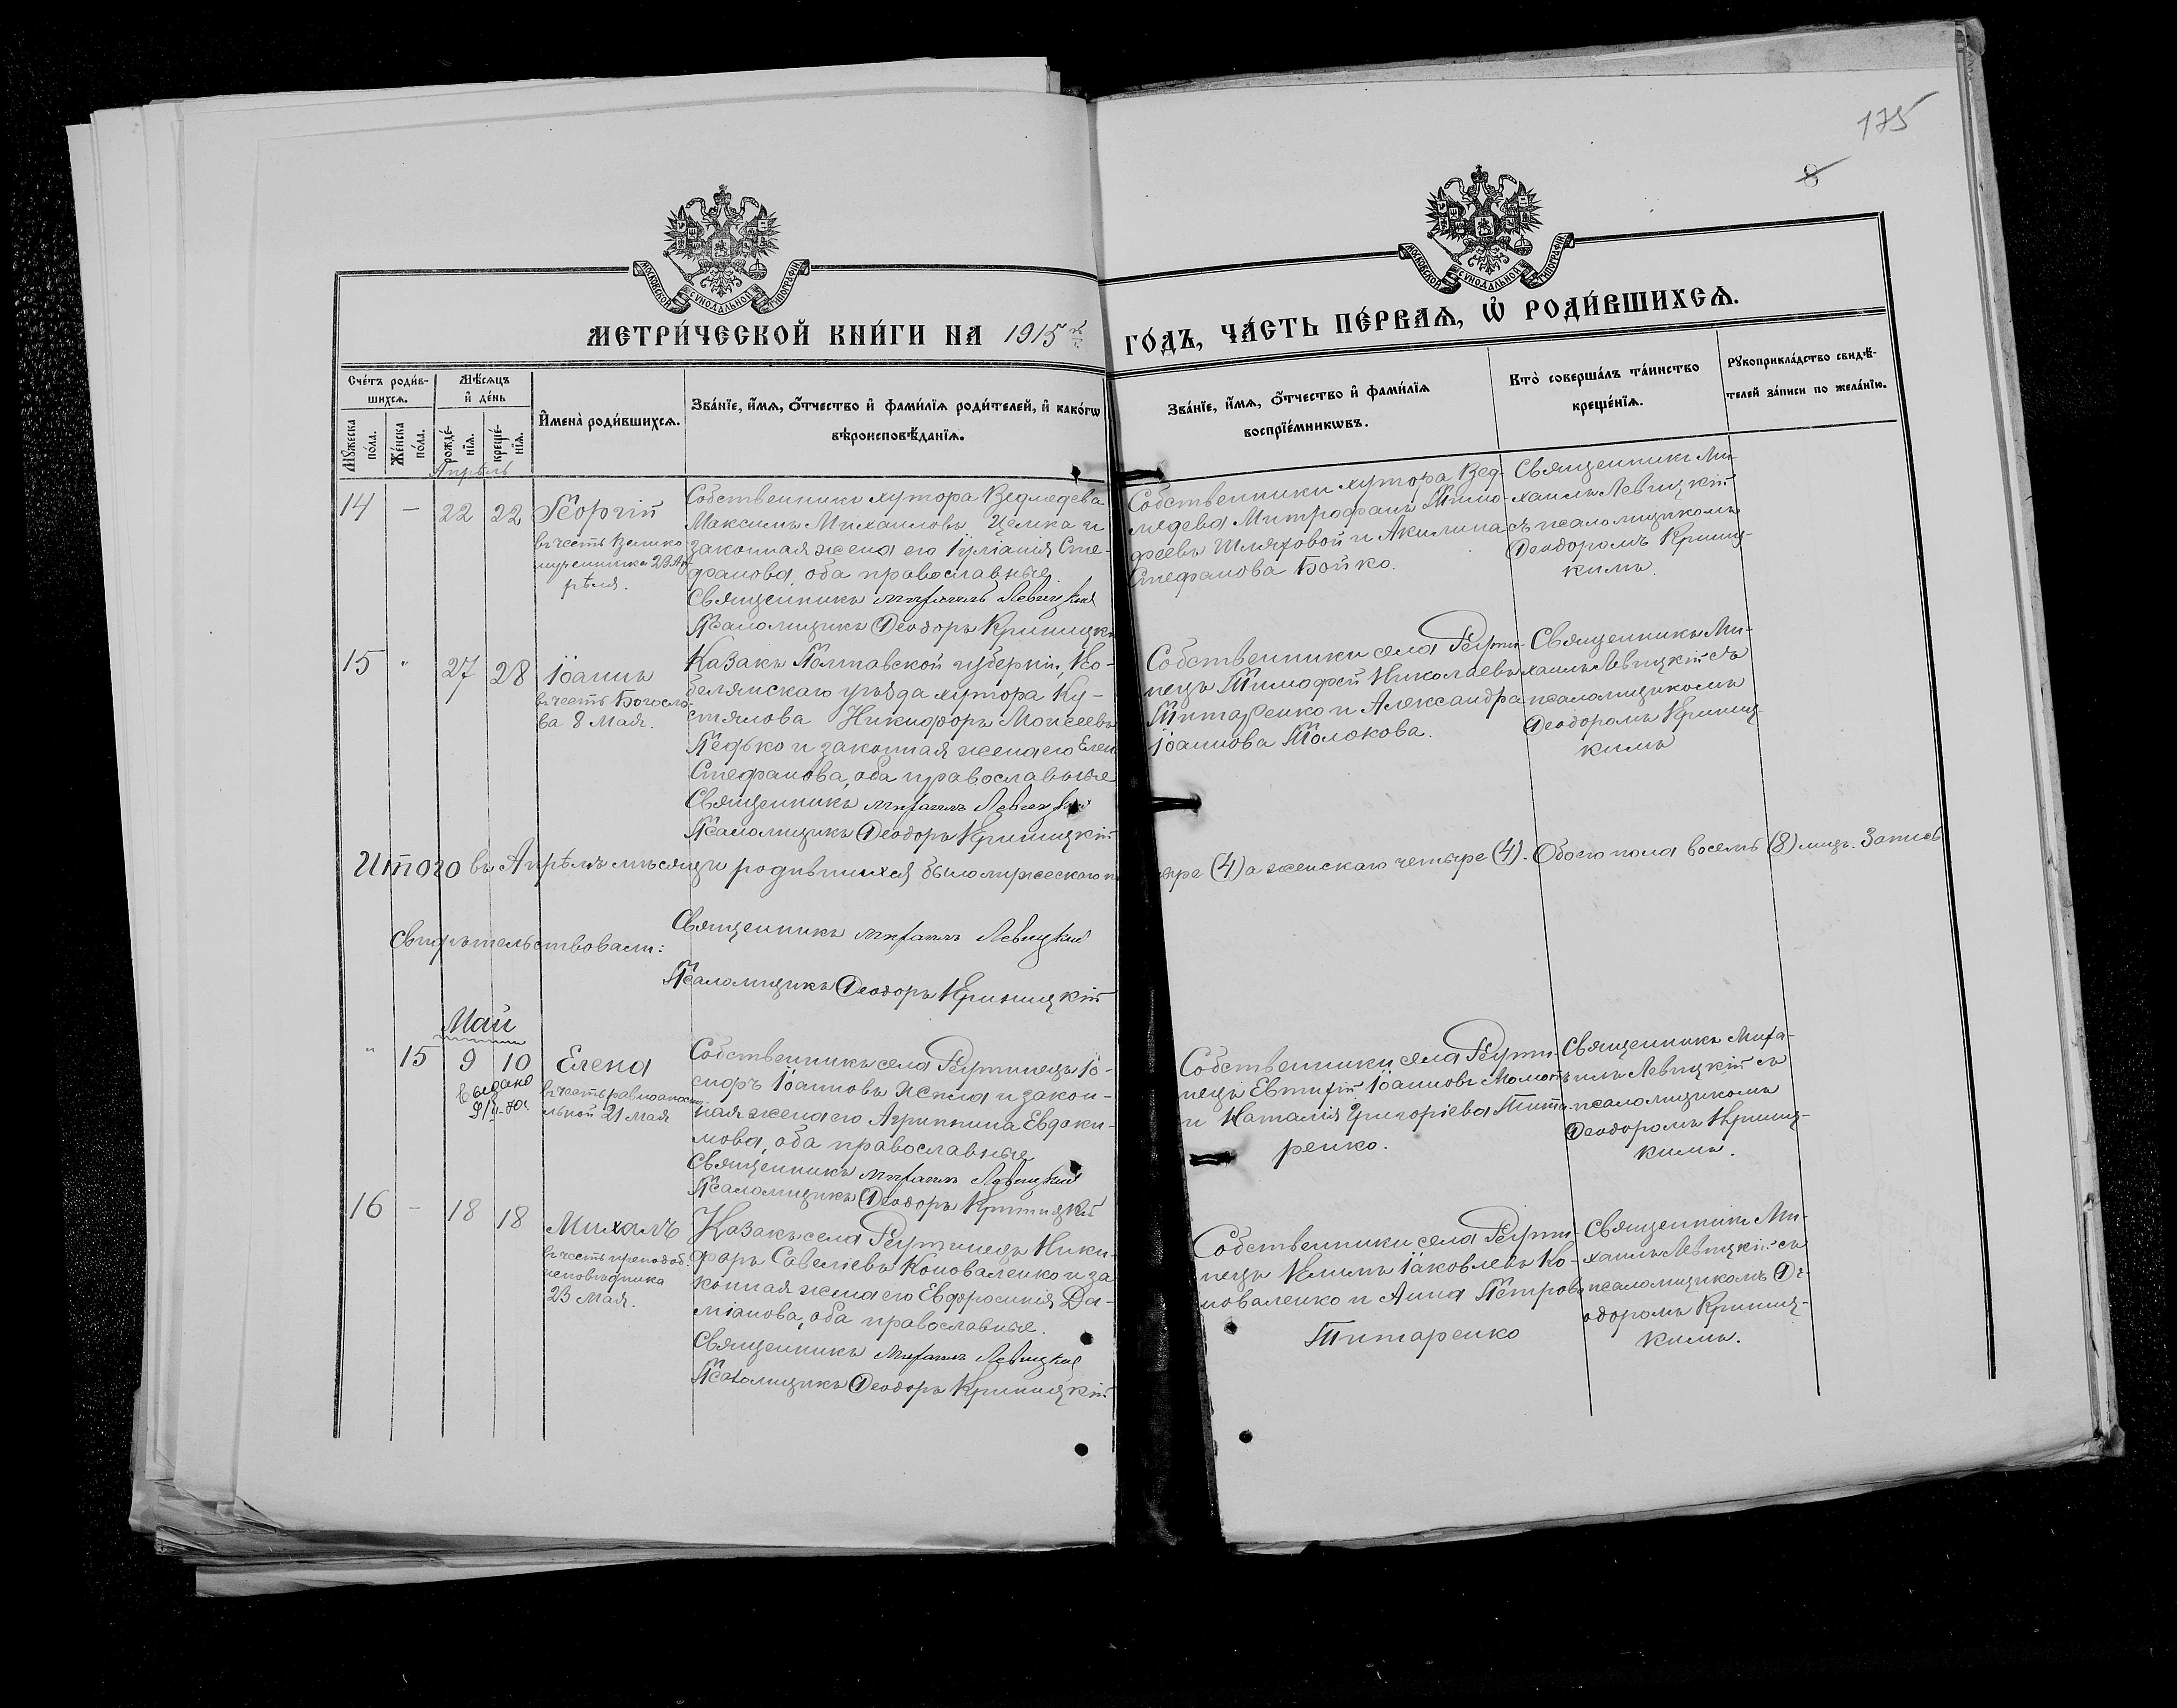 175
8
МОСКОВСКОЙ СѴНОДАЛЬНОЙ ТИПОГРАФІИ
МОСКОВСКОЙ СѴНОДАЛЬНОЙ ТИПОГРАФІИ
МЕТРИ́ЧЕСКОЙ КНИ́ГИ НА 1915 й
ГО́ДЪ, ЧА́СТЬ ПЕ́РВАѦ, Ѡ҆ РОДИ́ВШИХСѦ.
Сче́тъ роди́в-
шихсѧ.
Мꙋ́жеска
по́ла.
Же́нска
по́ла.
Мѣ́сѧцъ
и҆ де́нь
рожде́-
нїѧ.
креще́-
нїѧ.
И҆мена̀ роди́вшихсѧ.
Зва́нїе, и҆́мѧ, ѻ҆́тчество и҆ фами́лїѧ роди́телей, и҆ како́гѡ
вѣроисповѣ́данїѧ.
Зва́нїе, и҆́мѧ, ѻ҆́тчество и҆ фами́лїѧ
воспрїе́мникѡвъ.
Кто̀ соверша́лъ та́инство
креще́нїѧ.
Рꙋкоприкла́дство свидѣ́-
телей за́писи по жела́нїю.
Апрѣль
14 — 22 22 Георгій
въ честь Велико-
мученника 23 Ап-
рѣля.
Собственникъ хутора Ведмедева
Максимъ Михаиловъ Цемка и
законная жена его Іуліанія Сте-
фанова, оба православные.
Священникъ Михаилъ Левицкій
Псаломщикъ Ѳеодоръ Криницкій
Собственники хутора Вед-
медева Митрофанъ Тимо-
феевъ Шляховой и Акилина
Стефанова Бойко.
Священникъ Ми-
хаилъ Левицкій
съ псаломщикомъ
Ѳеодоромъ Криниц-
кимъ.
15 " 27 28 Іоаннъ
въ честь Богосло-
ва 8 Мая.
Казакъ Полтавской губерніи, Ко-
белякскаго уѣзда хутора Ку-
стялова Никифоръ Моисеевъ
Педько и законная жена его Елен
Стефанова, оба православные
Священникъ Михаилъ Левицкій
Псаломщикъ Ѳеодоръ Криницкій
Собственники села Реути-
нецъ Тимофей Николаевъ
Титаренко и Александра
Іоаннова Толокова.
Священникъ Ми-
хаилъ Левицкій съ
псаломщикомъ
Ѳеодоромъ Криниц-
кимъ
Итого въ Апрѣлѣ мѣсяцѣ родившихся было мужескаго п
ыре (4) а женскаго четыре (4). Обоего пола восемь (8) лицъ. Запись
свидѣтельствовали:
Священникъ Михаилъ Левицкій
Псаломщикъ Ѳеодоръ Криницкій
Май
" 15 9 10 Елена
Выдано
въ честь равноапосто-
льной 21 Мая
Собственникъ села Реутинецъ Іо-
сифъ Іоанновъ и закон-
ная жена его Агриппина Евдоки-
мова, оба православные
Священникъ Михаилъ Левицкій
Псаломщикъ Ѳеодоръ Криницкій
Собственники села Реути-
нецъ Евтихій Іоанновъ Момотъ
и Наталія Григоріева Тита-
ренко.
Священникъ Миха-
илъ Левицкій съ
псаломщикомъ
Ѳеодоромъ Криниц-
кимъ.
16 — 18 18 Михалъ
въ честь преподоб.
исповѣдника
23 Мая.
Казакъ села Реутинецъ Ники-
форъ Савеліевъ Коноваленко и за
конная жена его Евфросинія Да-
міанова, оба православные.
Священникъ Михаилъ Левицкій
Псаломщикъ Ѳеодоръ Криницкій
Собственники села Реути-
нецъ Климъ Іаковлевъ Ко-
новаленко и Анна Петрова
Титаренко
Священникъ Ми-
хаилъ Левицкій съ
псаломщикомъ Ѳе-
одоромъ Криниц-
кимъ.